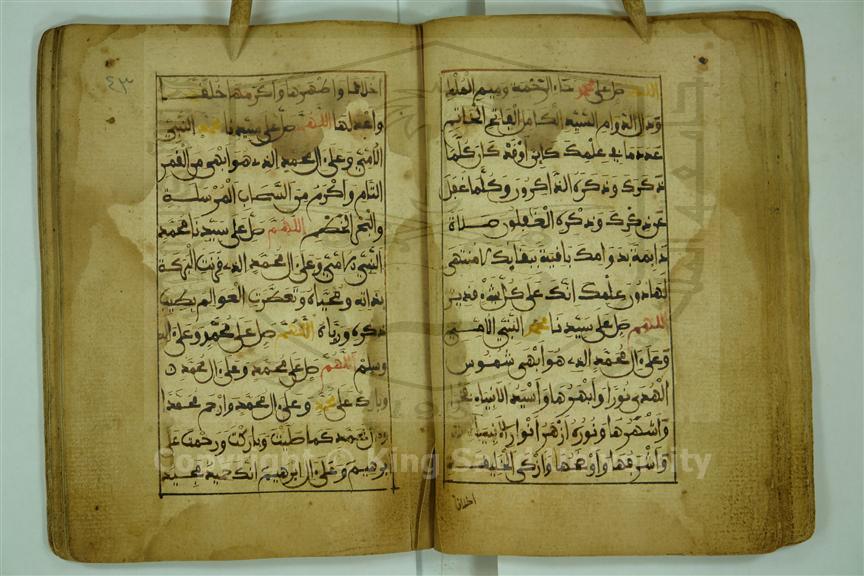 اللهم صل على محمد حاء الرحمة وميم الملك
ودال الدوام السيد الكامل الفاتح الخاتم
عدد ما في علمك كاين او قد كان كلما
ذكرك وذكره الذاكرون وكلما غفل
عن ذكرك وذكره الغافلون صلاة
دايمة بدوامك باقية ببقايك لا منتهى
لها دون علمك انك على كل شيء قدير
اللهم صل على سيدنا محمد النبي الامي
وعلى ال محمد الذي هو ابهى شموس
الهدى نورا وابهرها واسير الانبياء فخرا
واشهرها ونوره ازهر انوار الانبياء
واشرفها واوضحها وازكى الخليقة
اخلاق
٤٣
اخلاقا واطهرها واكرمها خلقا
واعدلها اللهم صل على سيدنا محمد النبي
الامي وعلى ال محمد الذي هو ابهى من القمر
التام واكرم من السحاب المرسلة
والبحر الخضم اللهم صل على سيدنا محمد
النبي الامي وعلى ال محمد الذي قرنت البركة
بذاته ومحياه وتعطرت العوالم بطيب
ذكره ورياه اللهم صل على محمد وعلى اله
وسلم اللهم صل على محمد وعلى ال محمد
وبارك على محمد وعلى ال محمد وارحم محمدا
وال محمد كما صليت وباركت ورحمت على
ابرهيم وعلى ال ابرهيم انك حميد مجيد
Copyright © King Saud University